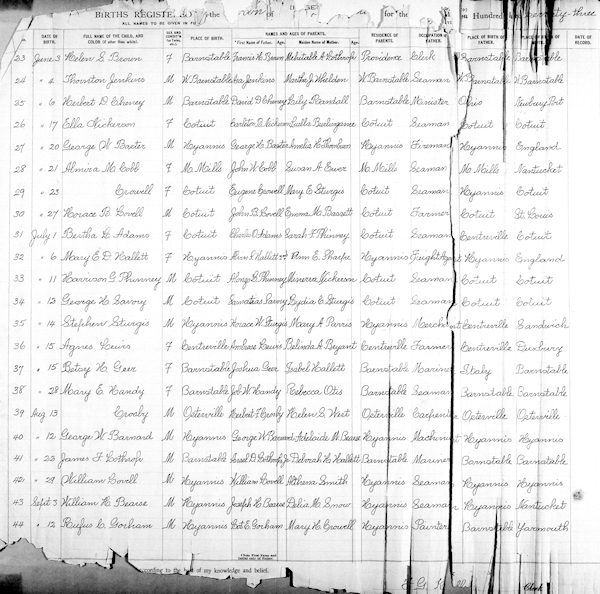 BIRTHS REGISTE the for the Hundred and seventy-three
ALL NAMES TO BE GIVEN IN F
DATE OF BIRTH. FULL NAME OF THE CHILD, AND COLOR (if other than white). SEX AND CONDITION PLACE OF BIRTH. NAMES AND AGES OF PARENTS. RESIDENCE OF PARENTS. OCCUPATION PLACE OF BIRTH OF FATHER. PLACE OF BIRTH OF MOTHER. DATE OF RECORD.
First Name of Father. Age. Maiden Name of Mother. Age.
23 June 3 Helen S. Brown F Barnstable Francis H. Brown Mehitable A. Lothrop Providence Clerk Barnstable Barnstable
24 " 4 Thornton Jenkins M W. Barnstable Asa Jenkins Martha J. Wheldon W. Barnstable Seaman W. Barnstable W. Barnstable
25 " 6 Herbert D. Cheney M Barnstable David D. Cheney Lucy Randall Barnstable Minister Ohio Newbury Port
26 " 17 Ella Nickerson F Cotuit Carleton B. Nickerson Luella Burlingame Cotuit Seaman Cotuit Cotuit
27 " 20 George W. Baxter M Hyannis George H. Baxter Amelia Hyannis Fireman Hyannis England
28 " 21 Almira M. Cobb F M. Mills John W. Cobb Susan A. Ewer M. Mills Seaman M. Mills Nantucket
29 " 23 Crowell F Cotuit Eugene Crowell Mary E. Sturgis Cotuit Seaman Hyannis Cotuit
30 " 27 Horace B. Lovell M Cotuit John B. Lovell Emma M. Bassett Cotuit Farmer Cotuit St. Louis
31 July 1 Bertha L. Adams F Cotuit Charles O. Adams Sarah F. Phinney Cotuit Seaman Centreville Cotuit
32 " 6 Mary E. D. Hallett F Hyannis Hallett Ann E. Hyannis Freight Agent Hyannis England
33 " 11 Harrison G. Phinney M Cotuit Alonzo Phinney Minerva Nickerson Cotuit Seaman Cotuit Cotuit
34 " 13 George H. Savory M Cotuit Savory Lydia C. Sturgis Cotuit Seaman Cotuit Cotuit
35 " 14 Stephen Sturgis M Hyannis Horace W. Sturgis Mary A. Parris Hyannis Merchant Centreville Sandwich
36 " 15 Agnes Lewis F Centreville Ambrose Lewis Belinda A. Bryant Centreville Farmer Centreville Duxbury
37 " 15 Betsy H. Geer F Barnstable Joshua Geer Isabel Hallett Barnstable Mariner Italy Barnstable
38 " 28 Mary E. Handy F Barnstable Job W. Handy Rebecca Otis Barnstable Seaman Barnstable Barnstable
39 Aug 13 Crosby M Osterville Herbert F. Crosby Helen S. West Osterville Carpenter Osterville Osterville
40 " 12 George W. Barnard M Hyannis George W. Barnard Adelaide M. Bearse Hyannis Machinist Hyannis Hyannis
41 " 22 James F. Lothrop M Barnstable Ansel D. Lothrop, Jr. Deborah H. Hallett Barnstable Mariner Barnstable Barnstable
42 " 29 William Lovell M Hyannis William Lovell Althena Smith Hyannis Seaman Hyannis Hyannis
43 Sept 3 William H. Bearse M Hyannis Joseph H. Bearse Delia M. Snow Hyannis Seaman Hyannis Nantucket
44 " 12 Rufus C. Gorham M Hyannis E. Gorham Mary H. Crowell Hyannis Painter Barnstable Yarmouth
according to the best of my knowledge and belief.
Clerk